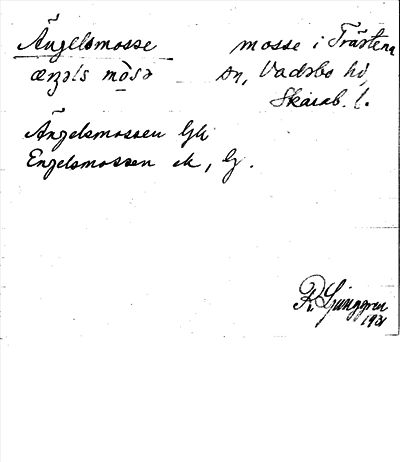 Ängelsmosse mosse i Trästena
æŋəls mosə sn, Vadsbo hd,
Skarab. l.
Ängelsmossen Gk
Engelsmossen ek, G.
R. Ljunggren
1931